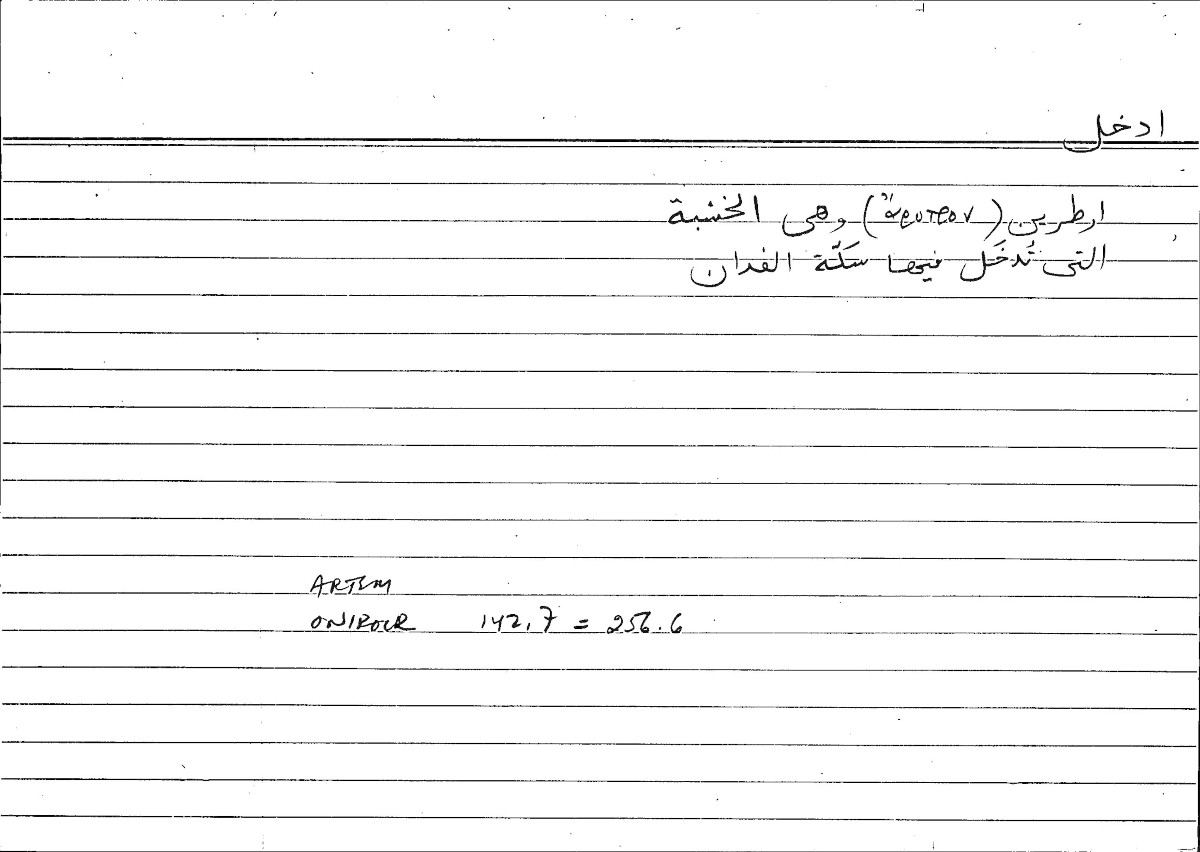 ادخل
ارطرين (ἄροτρον) وهى الخشبة
التى تُدخَل فيها سكّة الفدان
ARTEM
ONIROCR 142,7 = 256.6